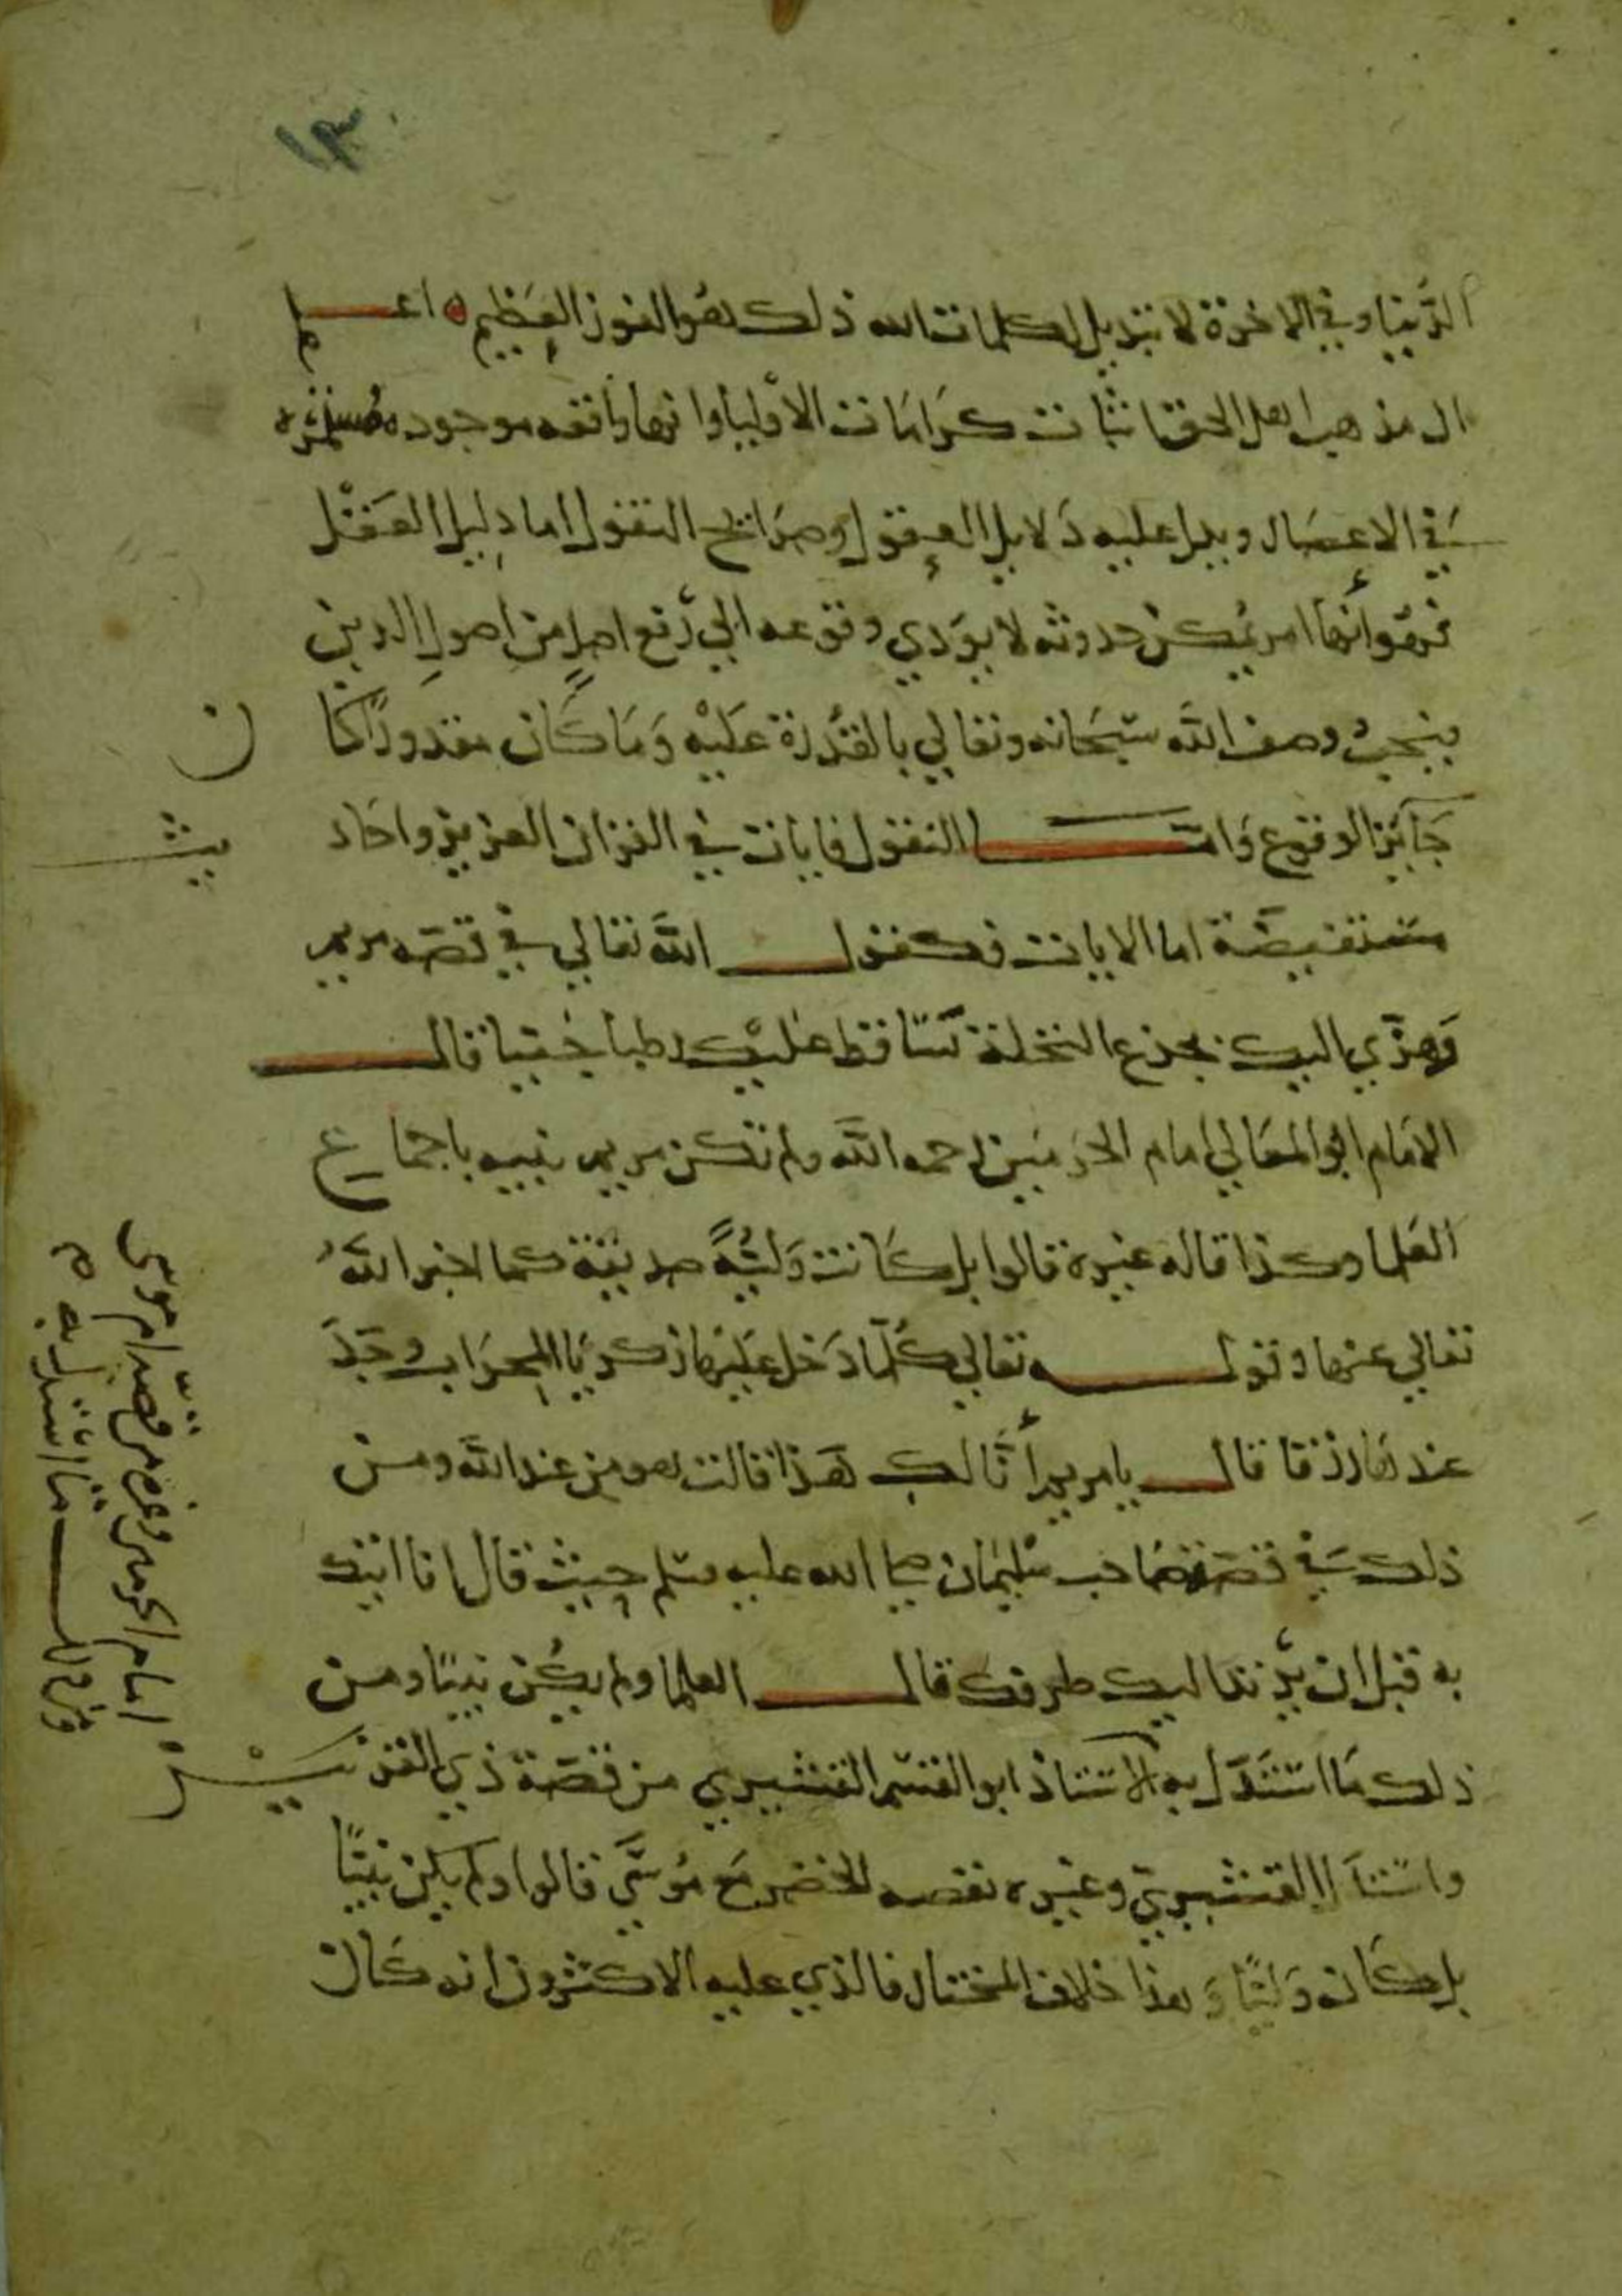 ١٣٠
الدنيا وفي الاخرة لا تبديل لكلمات الله ذلك هو الفوز العظيم اعلم
ان مذهب اهل الحق اثبات كرامات الاوليا وانها واقعه موجوده مستمره
في الاعصار ويدل عليه دلايل العقول وصرايح النقول اما دليل العقل
فهو أنها امر يمكن حدوثه لا يودي وقوعه الي رفع اصل من اصول الدين
فيجب وصف الله سبحانه وتعالي بالقدرة عليه وما كان مقدورا كا
ن
جايز الوقوع واما النقول فايات في القران العزيز واحاد
يث
مستفيضة اما الايات فكقول الله تعالي في قصه مريم
وهزي اليك بجذع النخلة تساقط عليك رطبا جنيا قال
الامام ابو المعالي امام الحرمين رحمه الله ولم تكن مريم نبيه باجماع
العلما وكذا قاله غيره قالوا بل كانت وليةً صديقة كما اخبر الله
تعالي عنها وقوله تعالي كلما دخل عليها زكريا المحراب وجد
عندها رزقا قال يا مريم أنا لك هذا قالت هو من عند الله ومن
ذلك في قصة صاحب سليمان صلى الله عليه وسلم حيث قال انا اتيك
به قبل ان يرتد اليك طرفك قال العلما ولم يكن نبيا ومن
ذلك ما استدل به الاستاذ ابو القسم القشيري من قصة ذي القرنين
واستدل القشيري وغيره بقصه الخضر مع موسي قالوا ولم يكن نبيًا
بل كان وليًا وهذا خلاف المختار فالذي عليه الاكثرون انه كان
ومن ذلك ما استدل به
امام الحرمين وغيره من قصة ام موسى